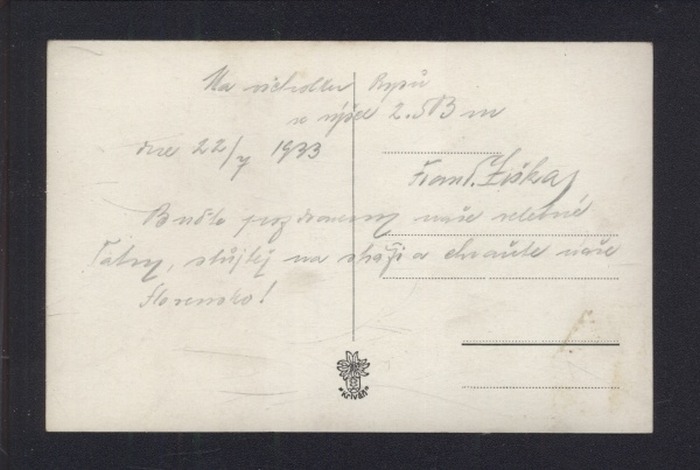 Na vrcholku Rysů
ve výšce 2.503 m
dne 22/7 1933
Frant. Žiška
Buďte pozdraveny naše velebné
Tatry, stůjtež na stráži a chraňte naše
Slovensko!
"Kriváň"